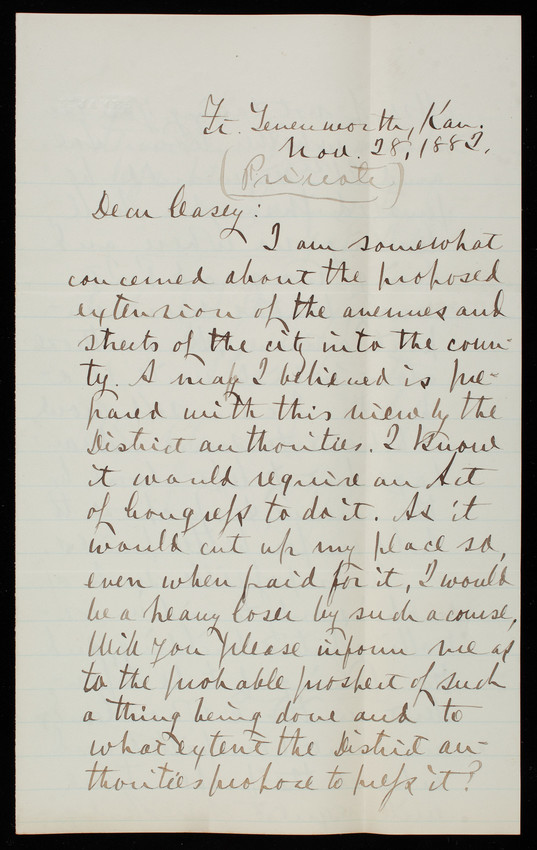 Ft. Levenworth, Kan.
Nov. 28, 1882.
(Private)
Dear Casey:
I am somewhat
concerned about the proposed
extension of the avenues and
streets of the city into the coun-
ty. A map I believed is pre-
pared with this view by the
District authorities. I know
it would require an Act
of Congress to do it. As it
would cut up my place so,
even when paid for it, I would
be a heavy loser by such a course,
Will you please inform me as
to the probable prospect of such
a thing being done and to
what extent the District au-
thorities propose to press it?